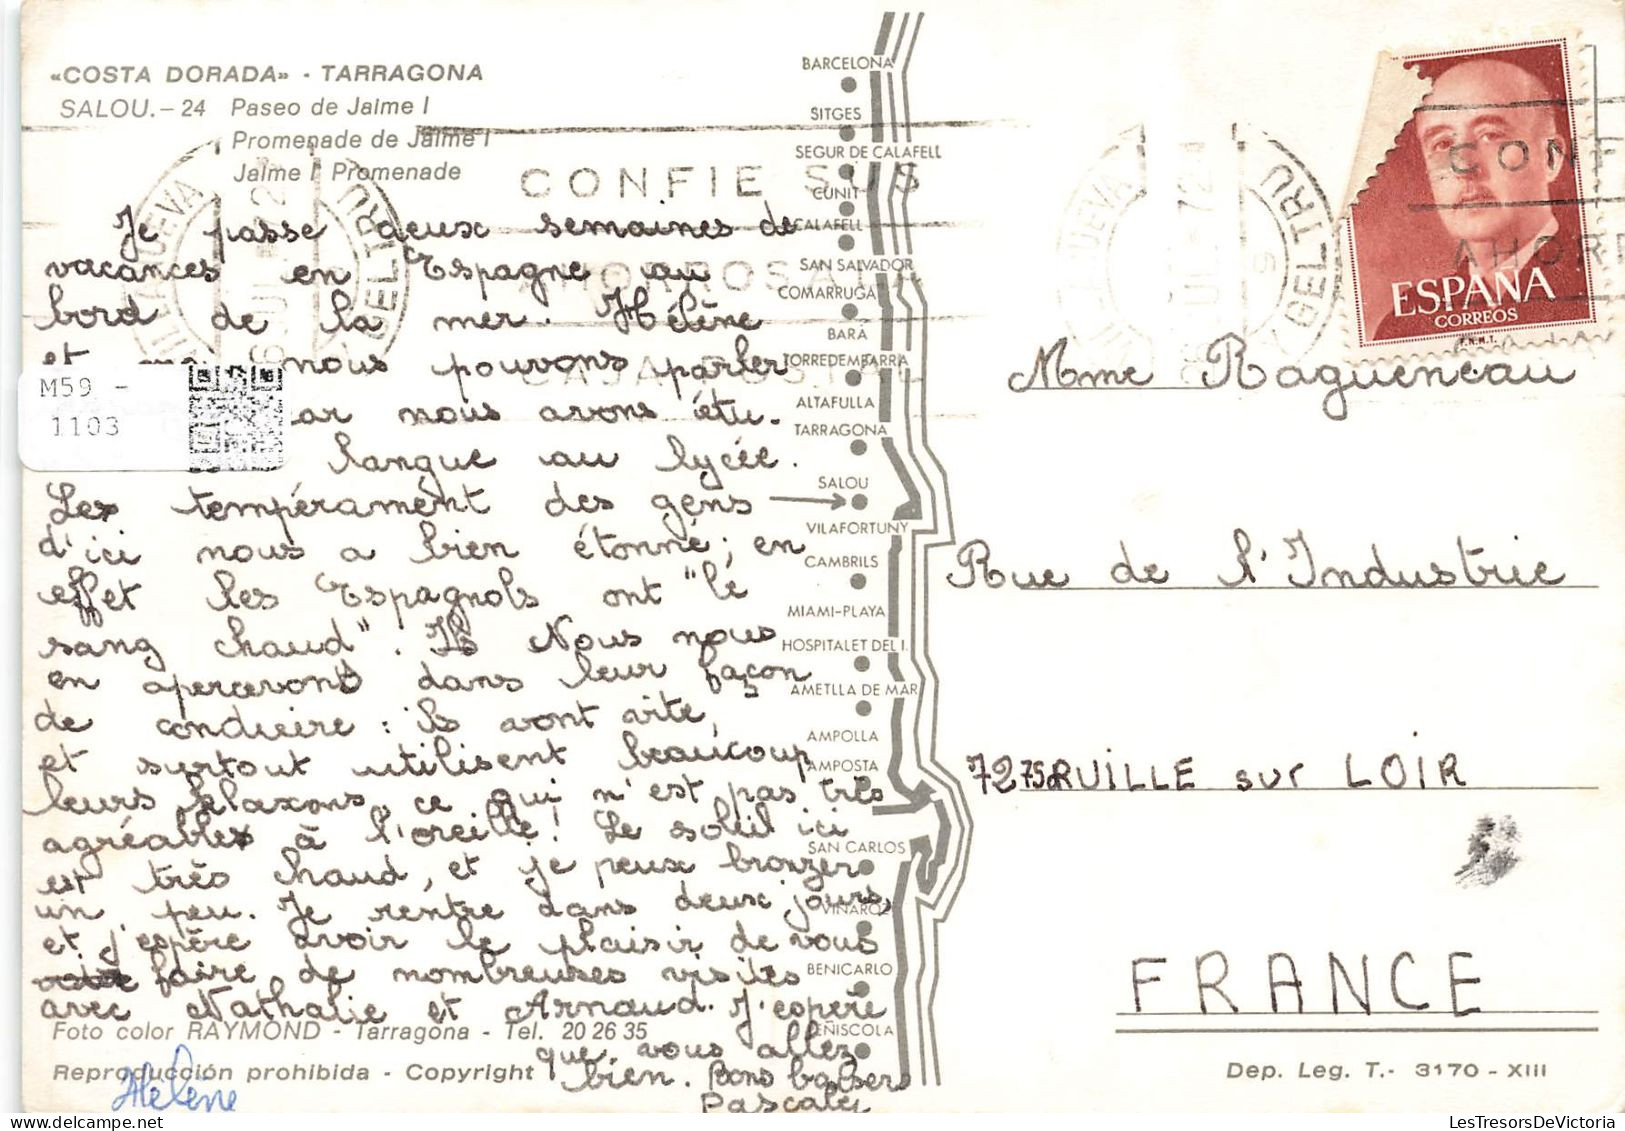 «COSTA DORADA» - TARRAGONA
SALOU.-24 Paseo de Jaime I
Promenade de Jaime I
Jaime I Promenade
Je passe deux semaines de
vacances en Espagne au
bord de la mer. Hélène
et moi nous pouvons parler
car nous avons étu-
langue au lycée.
Les tempérament des gens
d'ici nous a bien étonné; en
effet les Espagnols ont "lé
sang chaud". Ils Nous nous
en apercevons dans leur façon
de conduire : ils vont vite,
et surtout utilisent beaucoup
leurs klaxons, ce qui n'est pas très
agréables à l'oreille! Le soleil ici
est très chaud, et je peux bronzer
un peu. Je rentre dans deux jours,
et j'espère avoir le plaisir de vous
faire de nombreuses visites
avec Nathalie et Arnaud. J'espère
que vous allez
bien. Bons baisers
Pascale
Hélène
Foto color RAYMOND - Tarragona - Tel. 20 26 35
Reproducción prohibida - Copyright
M59 -
1103
BARCELONA
SITGES
SEGUR DE CALAFELL
CUNIT
CALAFELL
SAN SALVADOR
COMARRUGA
BARÁ
TORREDEMBARRA
ALTAFULLA
TARRAGONA
SALOU
VILAFORTUNY
CAMBRILS
MIAMI-PLAYA
HOSPITALET DEL I.
AMETLLA DE MAR
AMPOLLA
AMPOSTA
SAN CARLOS
VINAROZ
BENICARLO
PEÑISCOLA
CONFIE SUS
ESPAÑA
CORREOS
F.N.M.T.
CONF
AHOR
Mme Ragueneau
Rue de l'Industrie
72 RUILLE sur LOIR
FRANCE
Dep. Leg. T.- 3170 - XIII
LesTresorsDeVictoria